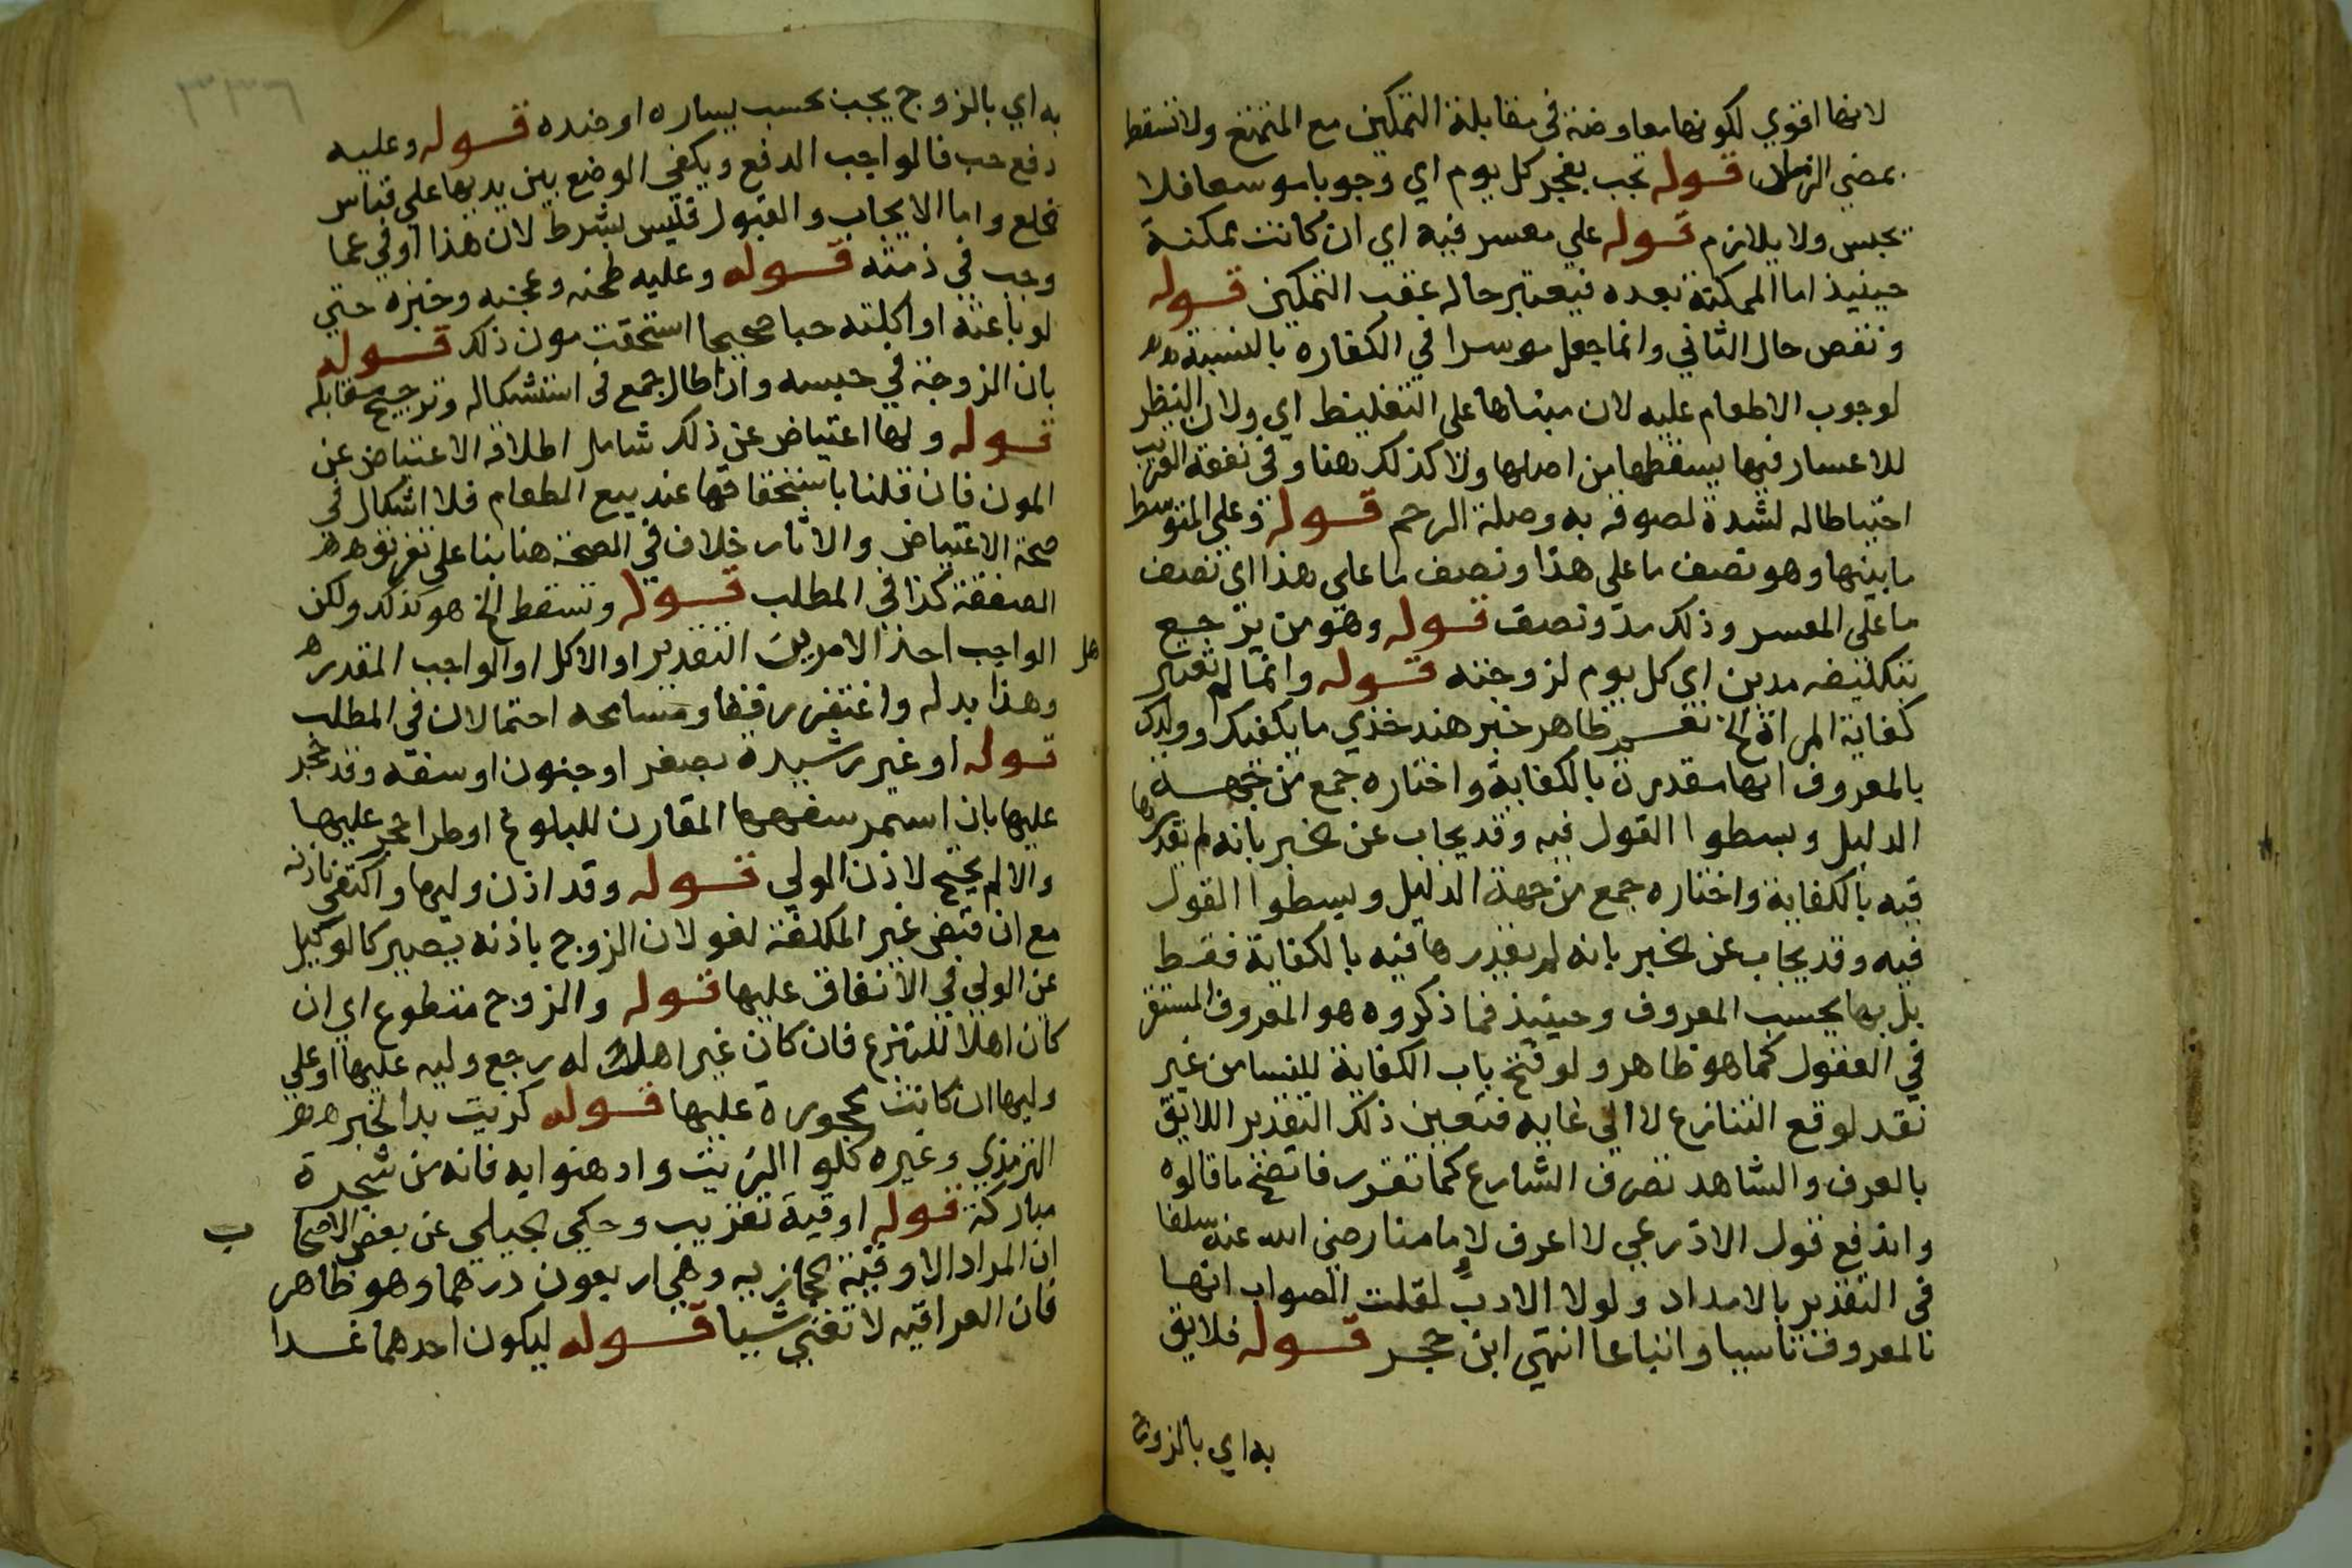 لانها اقوي لكونها معاوضة في مقابلة التمكين مع المتمتع ولا تسقط
بمضي الزمان قوله تجب بفجر كل يوم اي وجوبا موسعا فلا
يحبس ولا يلازم قوله علي معسر فيه اي ان كانت ممكنة
حينيذ اما الممكنة بعده فيعتبر حاله عقب التمكين قوله
ونقص حال الثاني وانما جعل موسرا في الكفاره بالنسبة
لوجوب الاطعام عليه لان مبناها على التغليظ اي ولان النظر
للاعسار فيها يسقطها من اصلها ولا كذلك هنا وفي نفقة القريب
احتياطا له لشدة لصوقه به وصلة الرحم قوله وعلى المتوسط
ما بينها وهو نصف ما على هذا ونصف ما علي هذا اي نصف
ما على المعسر وذلك مد ونصف قوله وهو من يرجع
بتكليفه مدين اي كل يوم لزوجته قوله وانما لم تعتبر
كفاية المراة الخ ظاهر خبر هند خذي ما يكفيك وولدك
بالمعروف انها مقدرة بالكفاية واختاره جمع من جهة
الدليل وبسطوا القول فيه وقد يجاب عن الخبر بانه لم يقدرها
فيه بالكفاية واختاره جمع من جهة الدليل وبسطوا القول
فيه وقد يجاب عن الخبر بانه لم يقدرها فيه بالكفاية فقط
بل بها بحسب المعروف وحينيذ فما ذكروه هو المعروف المستقر
في العقول كما هو ظاهر ولو فتح باب الكفاية للنسا من غير
تقد لوقع التنازع لا الي غايه فتعين ذلك التقدير اللايق
بالعرف والشاهد تصرف الشارع كما تقرر فاتضح ما قالوه
واندفع قول الاذرعي لا اعرف لامامنا رضي الله عنه سلفا
في التقدير بالامداد ولولا الادب لقلت الصواب انها
بالمعروف تاسيا واتباعا انتهى ابن حجر قوله فلايق
به اي بالزوج
به اي بالزوج يجب بحسب يساره او ضده قوله وعليه
دفع حب فالواجب الدفع ويكفي الوضع بين يديها علي قياس
خلع واما الايجاب والقبول فليس بشرط لان هذا اوفي عما
وجب في ذمته قوله وعليه طحنه وعجنه وخبزه حتي
لو باعته او اكلته حبا صحيحا استحقت مون ذلك قوله
بان الزوجة في حبسه واذ اطال جمع في استشكاله وترجيح مقابله
قوله ولها اعتياض عن ذلك شامل اطلاقه الاعتياض عن
المون فان قلنا باستحقاقها عند بيع الطعام فلا اشكال في
صحة الاعتياض والاثار خلاف في الصحة هنا بنا على تفريق
الصفقة كذا في المطلب قوله وتسقط الخ هو كذلك ولكن
هل الواجب احذ الامرين التقدير او الاكل او الواجب المقدر
وهذا بدله واغتفر رفقا ومسامحه احتمالان في المطلب
قوله او غير رشيدة بصغر او جنون او سفه وقد حجر
عليها بان استمر سفهها المقارن للبلوغ او طرا حجر عليها
والا لم يحتج لاذن الولي قوله وقد اذن وليها واكتفي باذنه
مع ان قبض غير المكلفة لغو لان الزوج باذنه يصير كالوكيل
عن الولي في الانفاق عليها قوله والزوج متطوع اي ان
كان اهلا للتبرع فان كان غير اهلا له رجع وليه عليها او علي
وليها ان كانت محجورة عليها قوله كزيت بدا لخبر
الترمذي وغيره كلوا الزيت وادهنوا به فانه من شجرة
مباركة قوله اوقية تقريب وحكي الجيلي عن بعض الاصحاب
ان المراد الاوقية الحجازيه وهي اربعون درهما وهو ظاهر
فان العراقيه لا تغني شيا قوله ليكون احدهما غدا